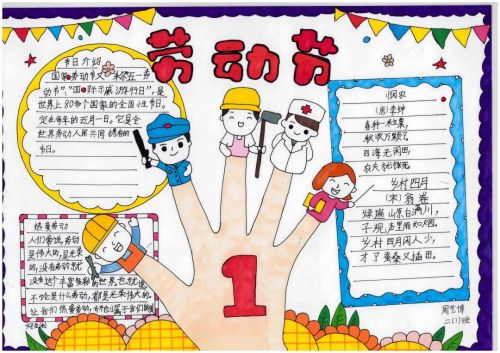 劳动节
节日介绍
国际劳动节又称五一劳
动节","国际示威游行日",是
世界上80多个国家的全国性节日。
定在每年的五月一日。它是全
世界劳动人民共同拥有的
节日。
悯农
(唐)李绅
春种一粒粟,
秋收万颗子。
四海无闲田,
农夫犹饿死
乡村四月
(宋)翁卷
绿遍山原白满川,
子规声里雨如烟。
乡村四月闲人少,
才了蚕桑又插田。
热爱劳动
人们常说,劳动
是伟大的,是光荣
的,没有劳动就
没有这丰富
不论是什么劳动,都是光荣伟大的。
让我们热爱劳动,
1
周艺博
二(1)班